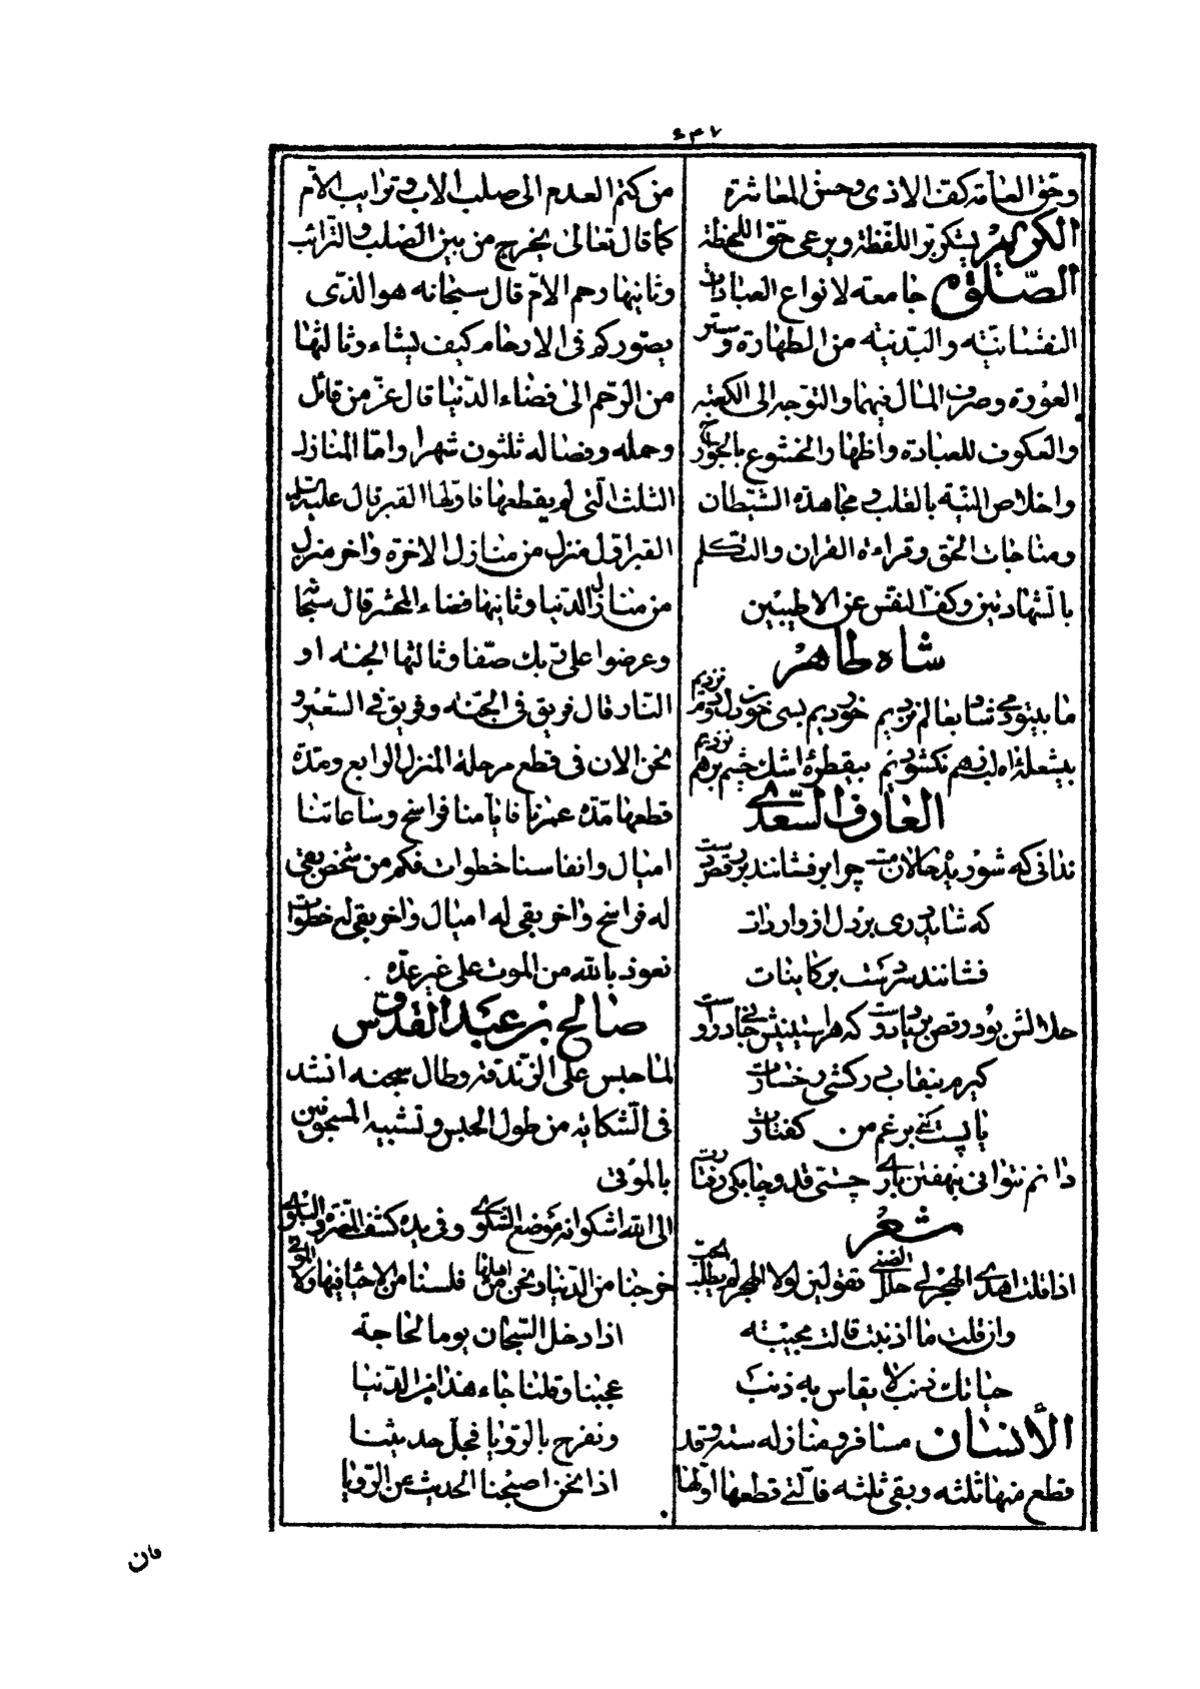 ٦٣٧
وحق العامة كف الاذى وحسن المعاشرة
الكريم يشكر بر اللفظة ويرعى حق اللحظة
الصّلوة جامعة لانواع العبادات
النفسانية والبدنية من الطهارة وستر
العورة وصرف المال فيهما والتوجه الى الكعبة
والعكوف للعبادة واظهار الخشوع بالجوارح
واخلاص النية بالقلب ومجاهدة الشيطان
ومناجات الحق وقراءة القران والتكلم
بالشهادتين وكف النفس عن الاطيبين
شاه طاهر
ما بيتو دمى شاد بعالم نزديم خورديم بسى خون دل ودم نزديم
بيشعلهٔ اه لب زهم نكشوديم بيقطرهٔ اشك چشم برهم نزديم
العارف السّعدى
ندانى كه شوريده حالان مست چرا برفشانند در رقص دست
كه شايد درى بر دل از واردات
فشانند سر دست بر كاينات
حلالش بود رقص بر ياد دوست كه هر استينيش جانى در اوست
كيرم بنقاب در كشى رخسارت
يا پست كنى برغم من كفتارت
دانم نتوانى بنهفتن بارى چستى قد وچابكى رفتارت
شعر
اذا قلت اهدى الهجر لى حلل الضنى تقولين لولا الهجر لم يطب الحب
وان قلت ما اذنبت قالت مجيبة
حياتك ذنب لا يقاس به ذنب
الأنسان مسافر ومنازله ستة وقد
قطع منها ثلثة وبقى ثلثة فالتى قطعها اولها
من كتم العدم الى صلب الاب وترايب الام
كما قال تعالى يخرج من بين الصلب والترائب
وثانيها رحم الام قال سبحانه هو الذى
يصوركم فى الارحام كيف يشاء وثالثها
من الرحم الى فضاء الدنيا قال عز من قائل
وحمله وفصاله ثلثون شهرا واما المنازل
الثلث التى لم يقطعها فاولها القبر قال عليه السلم
القبر اول منزل من منازل الاخرة واخر منزل
من منازل الدنيا وثانيها فضاء المحشر قال سبحانه
وعرضوا على ربك صفا وثالثها الجنه او
النار قال فريق فى الجنه وفريق فى السعير و
نحن الان فى قطع مرحلة المنزل الرابع ومدة
قطعها مدة عمرنا فايامنا فراسخ وساعاتنا
اميال وانفاسنا خطوات فكم من شخص بقى
له فراسخ واخر بقى له اميال واخر بقى له خطوات
نعوذ بالله من الموت على غير عدة .
صالح بن عبد القدوس
لما حبس على الزندقه وطال سجنه انشد
فى الشكاية من طول الحبس وتشبيه المسجونين
بالموتى
الى الله اشكو انه موضع الشكوى وفى يده كشف المضرة والبلوى
خرجنا من الدنيا ونحن من اهلها فلسنا من الاحيا فيها ولا الموتى
اذا دخل السجان يوما لحاجة
عجبنا وقلنا جاء هذا من الدنيا
ونفرح بالرؤيا فجل حديثنا
اذا نحن اصبحنا الحديث عن الرؤيا
فان